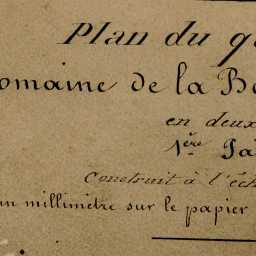 Plan du q
omaine de la B
en deux
1ère Pa
Construit à l'éch
un millimètre sur le papier